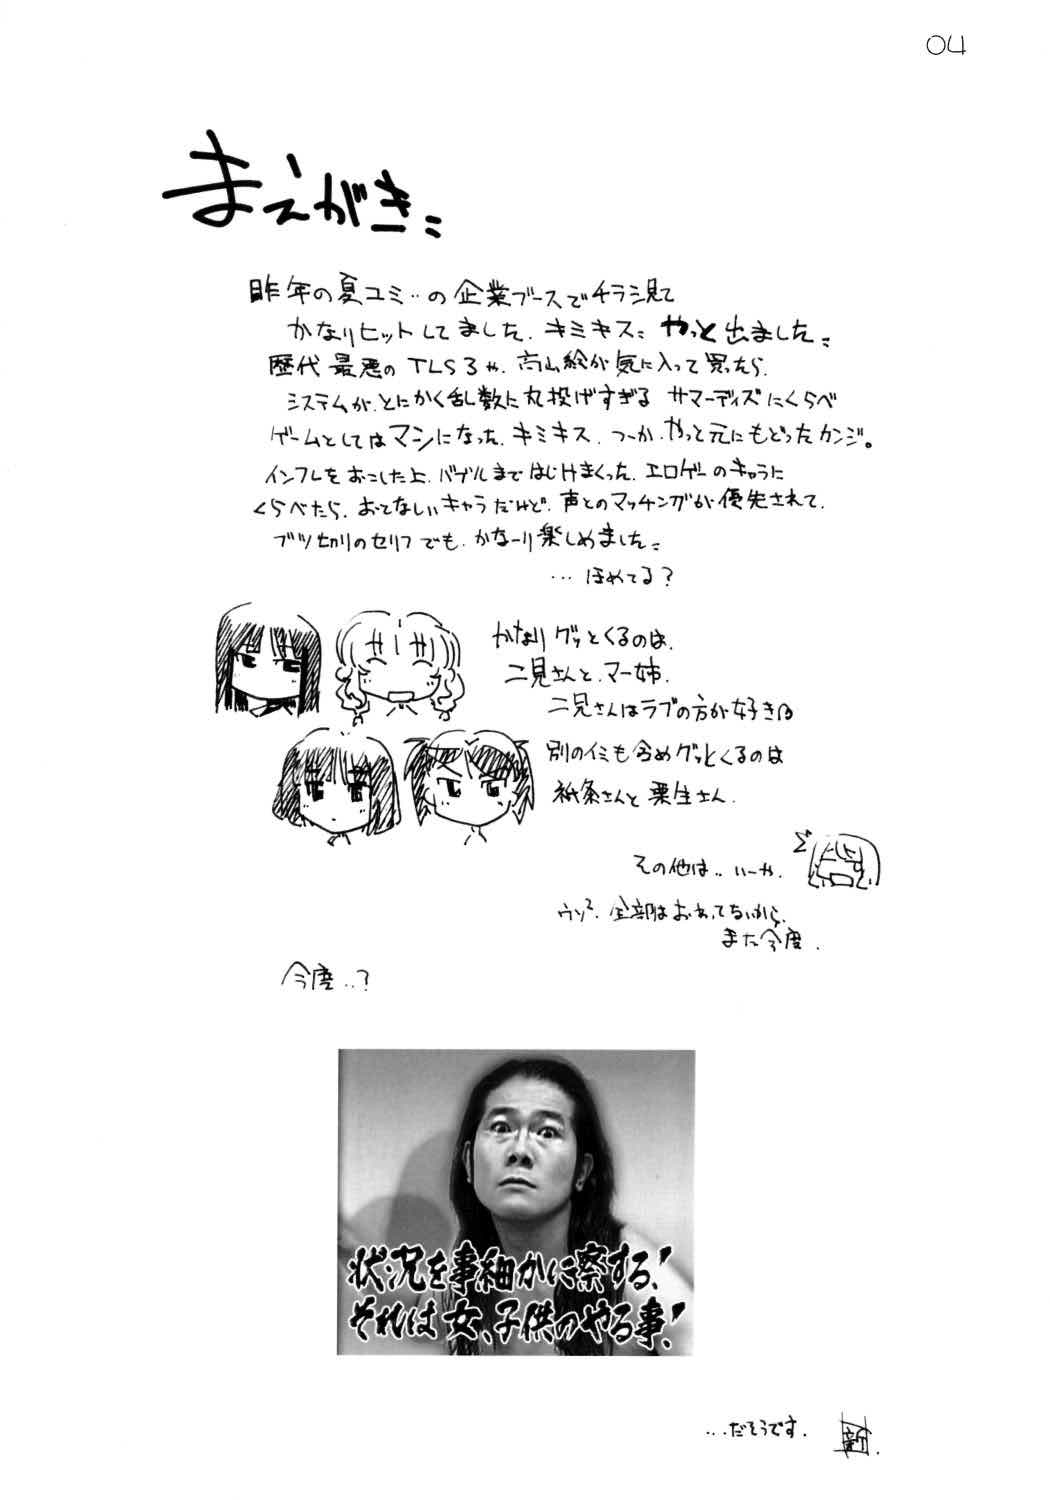 04
まえがき:
昨年の夏コミ‥の企業ブースでチラシ見て
かなりヒットしてました. キミキス: やっと出ました:
歴代最悪のTLS3や. 高山絵が気に入って買ったら.
システムが.とにかく乱数に丸投げすぎる サマーデイズにくらべ
ゲームとしてはマシになった.キミキス. つーか.やっと元にもどったカンジ。
インフレをおこした上.バブルまではじけまくった.エロゲーのキャラに
くらべたら.おとなしいキャラだけど.声とのマッチングが優先されて.
ブツ切りのセリフでも.かなーり楽しめました:
…ほめてる?
かなりグッとくるのは.
二見さんと.マー姉.
二見さんはラブの方が好き
別のイミも含めグッとくるのは
祇条さんと栗生さん.
その他は‥いーや.
ウソ². 全部はおわってないから.
また今度.
今度‥?
状況を事細かに察する!
それは女、子供のやる事!
…だそうです.
新